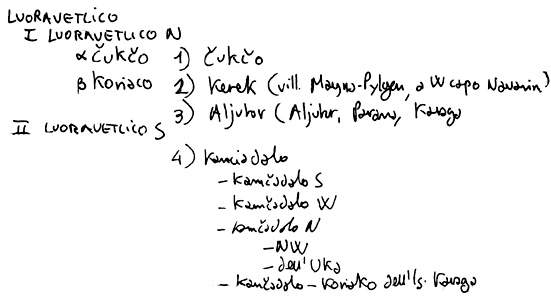 LUORAVETLICO
I LUORAVETLICO N
α Čukčo 1) Čukčo
β Koriaco 2) Kerek (vill. Mayna-Pylgen, a W capo Navarin)
3) Aljutor (Aljutor, Parana, Karaga
II LUORAVETLICO S
4) Kamčadalo
- Kamčadalo S
- Kamčadalo W
- Kamčadalo N
- NW
- dell'Uka
- Kamčadalo - Koriako dell'Is. Karaga